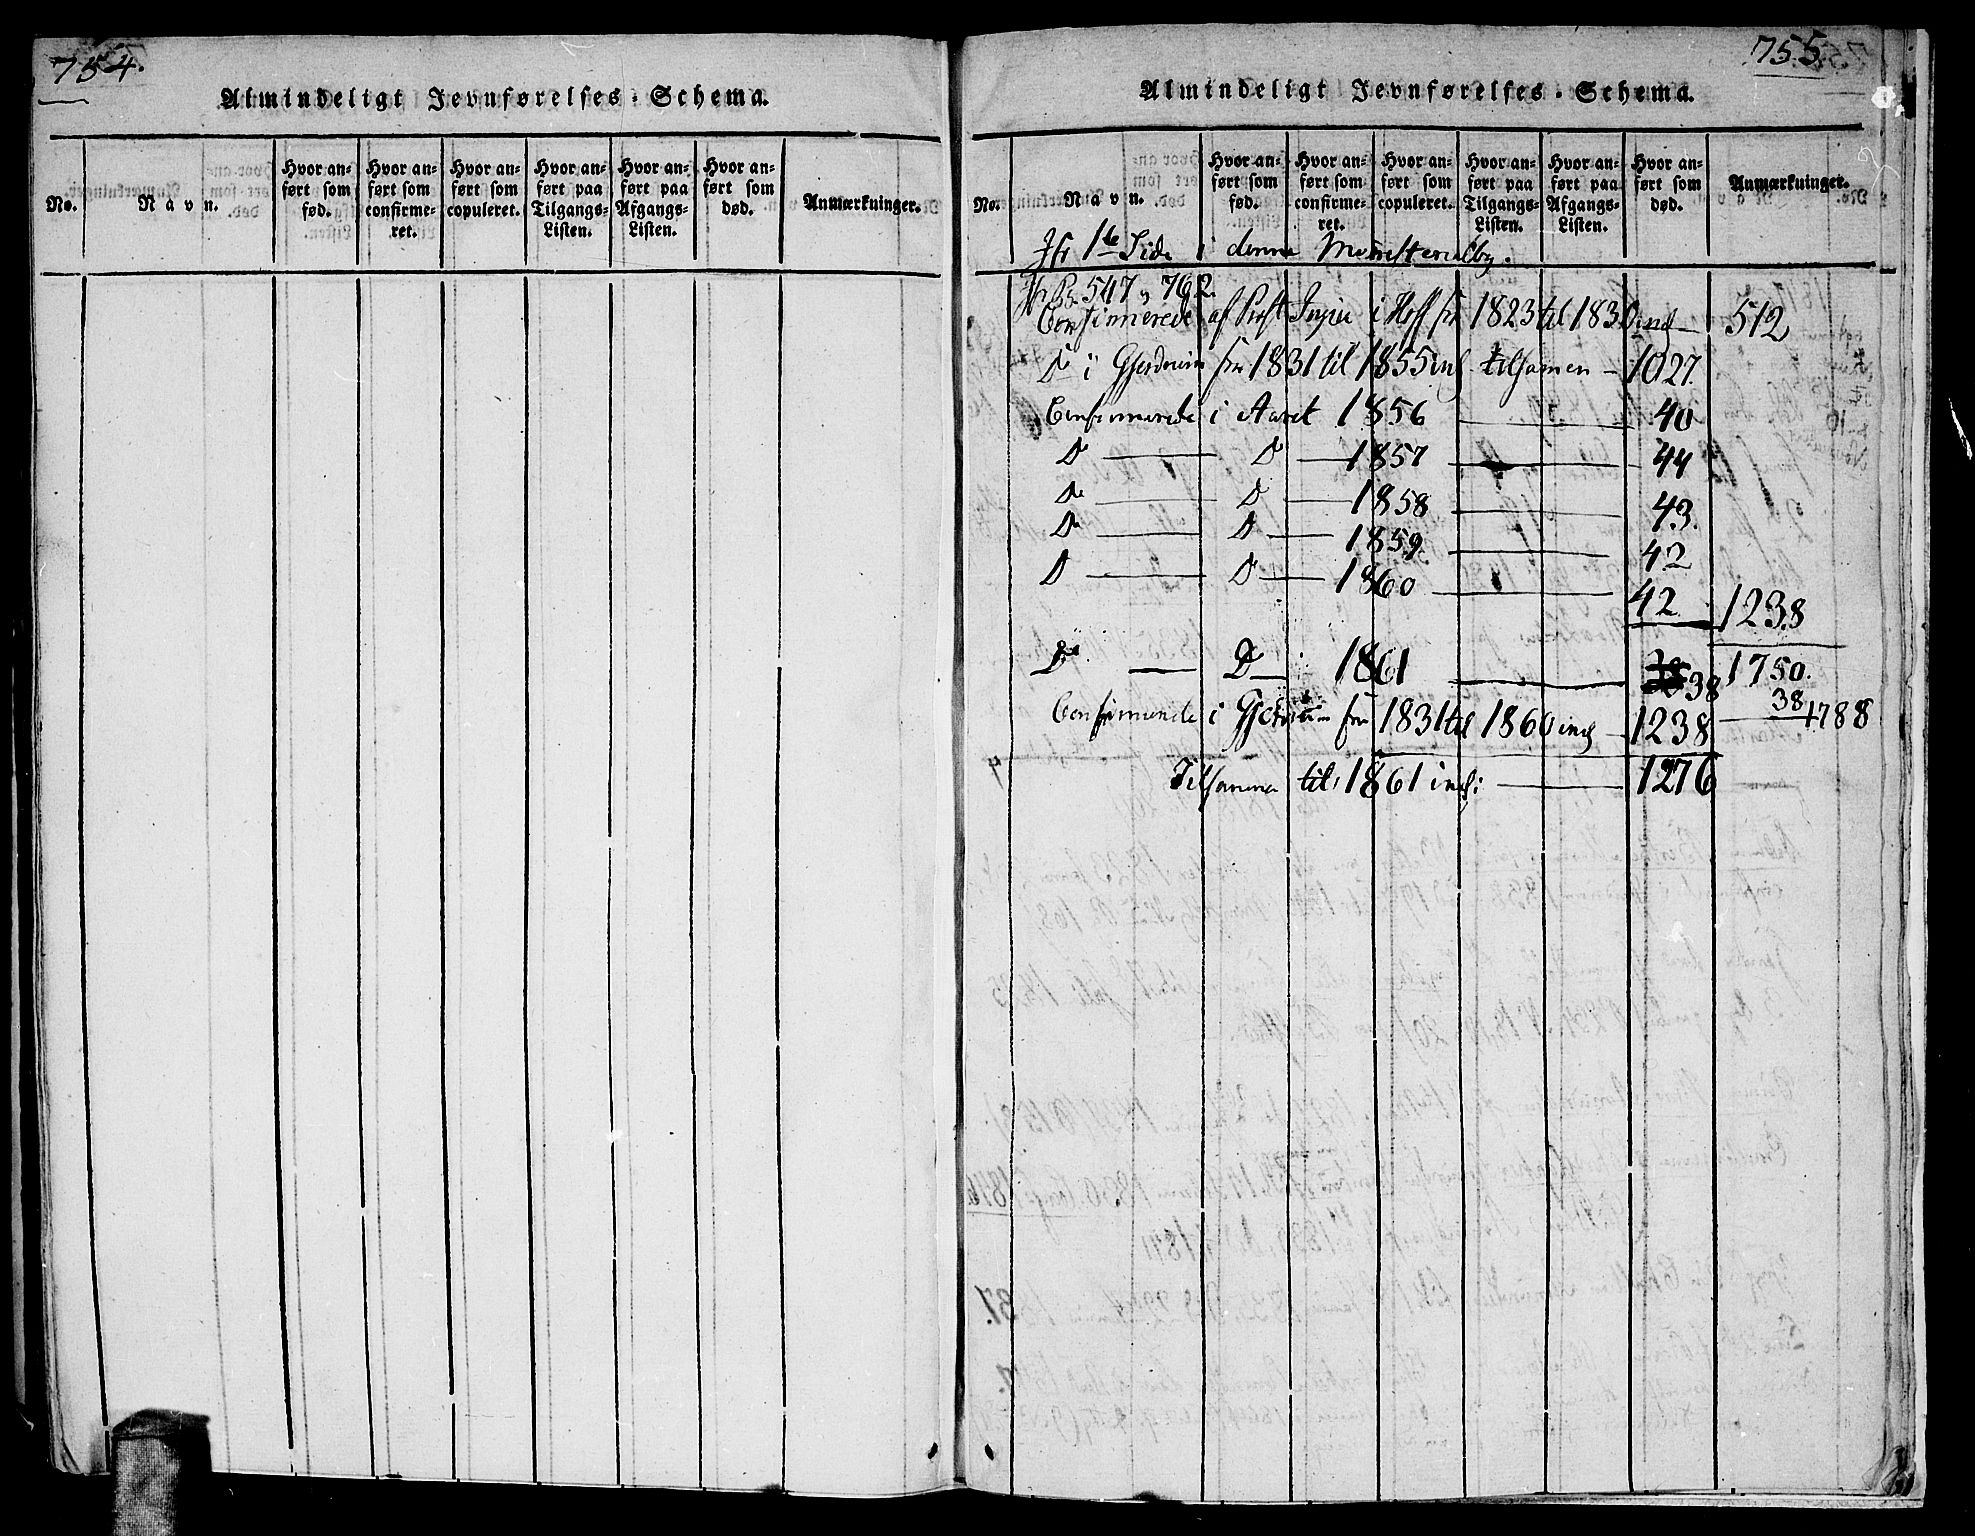 754.
Almindeligt Jevnførelses-Schema.
No.
Navn.
Hvor anført som fød.
Hvor anført som confirmeret.
Hvor anført som copuleret.
Hvor anført paa Tilgangs-Listen.
Hvor anført paa Afgangs-Listen.
Hvor anført som død.
Anmærkninger.
755.
Almindeligt Jevnførelses-Schema.
No.
Navn.
Hvor anført som fød.
Hvor anført som confirmeret.
Hvor anført som copuleret.
Hvor anført paa Tilgangs-Listen.
Hvor anført paa Afgangs-Listen.
Hvor anført som død.
Anmærkninger.
Jfr 1te Side i denne Ministerialbg.
Jfr Pg. 547 og 762.
Confirmerede af Prost Ingier i Hoff fra 1823 til 1830 incl 512
Do i Gjerdrum fra 1831 til 1855 incl tilsamen 1027.
Confirmerede i Aaret 1856 40
Do Do 1857 44
Do Do 1858 43.
Do Do 1859 42
Do Do 1860 42 1238
Do Do 1861 38 1750.
38
Confirmerede i Gjerdrum fra 1831 til 1860 incl 1238 1788
Tilsammen til 1861 incl: 1276